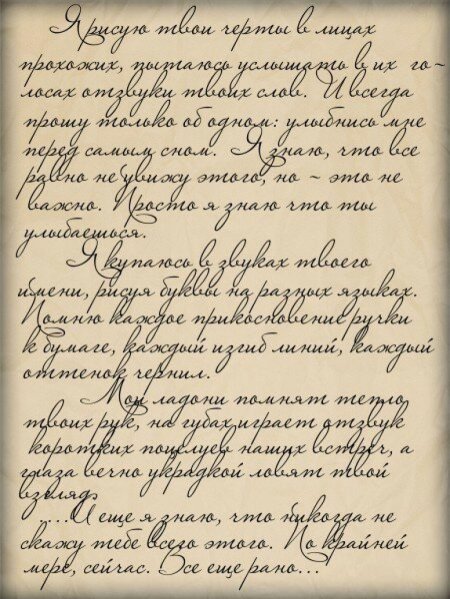 Я рисую твои черты в лицах
прохожих, пытаюсь услышать в их го-
лосах отзвуки твоих слов. И всегда
прошу только об одном: улыбнись мне
перед самым сном. Я знаю, что все
равно не увижу этого, но - это не
важно. Просто я знаю что ты
улыбаешься.
Я купаюсь в звуках твоего
имени, рисуя буквы на разных языках.
Помню каждое прикосновение ручки
к бумаге, каждый изгиб линий, каждый
оттенок чернил.
Мои ладони помнят тепло
твоих рук, на губах играет отзвук
коротких поцелуев наших встреч, а
глаза вечно украдкой ловят твой
взгляд
...И еще я знаю, что никогда не
скажу тебе всего этого. По крайней
мере, сейчас. Все еще рано...